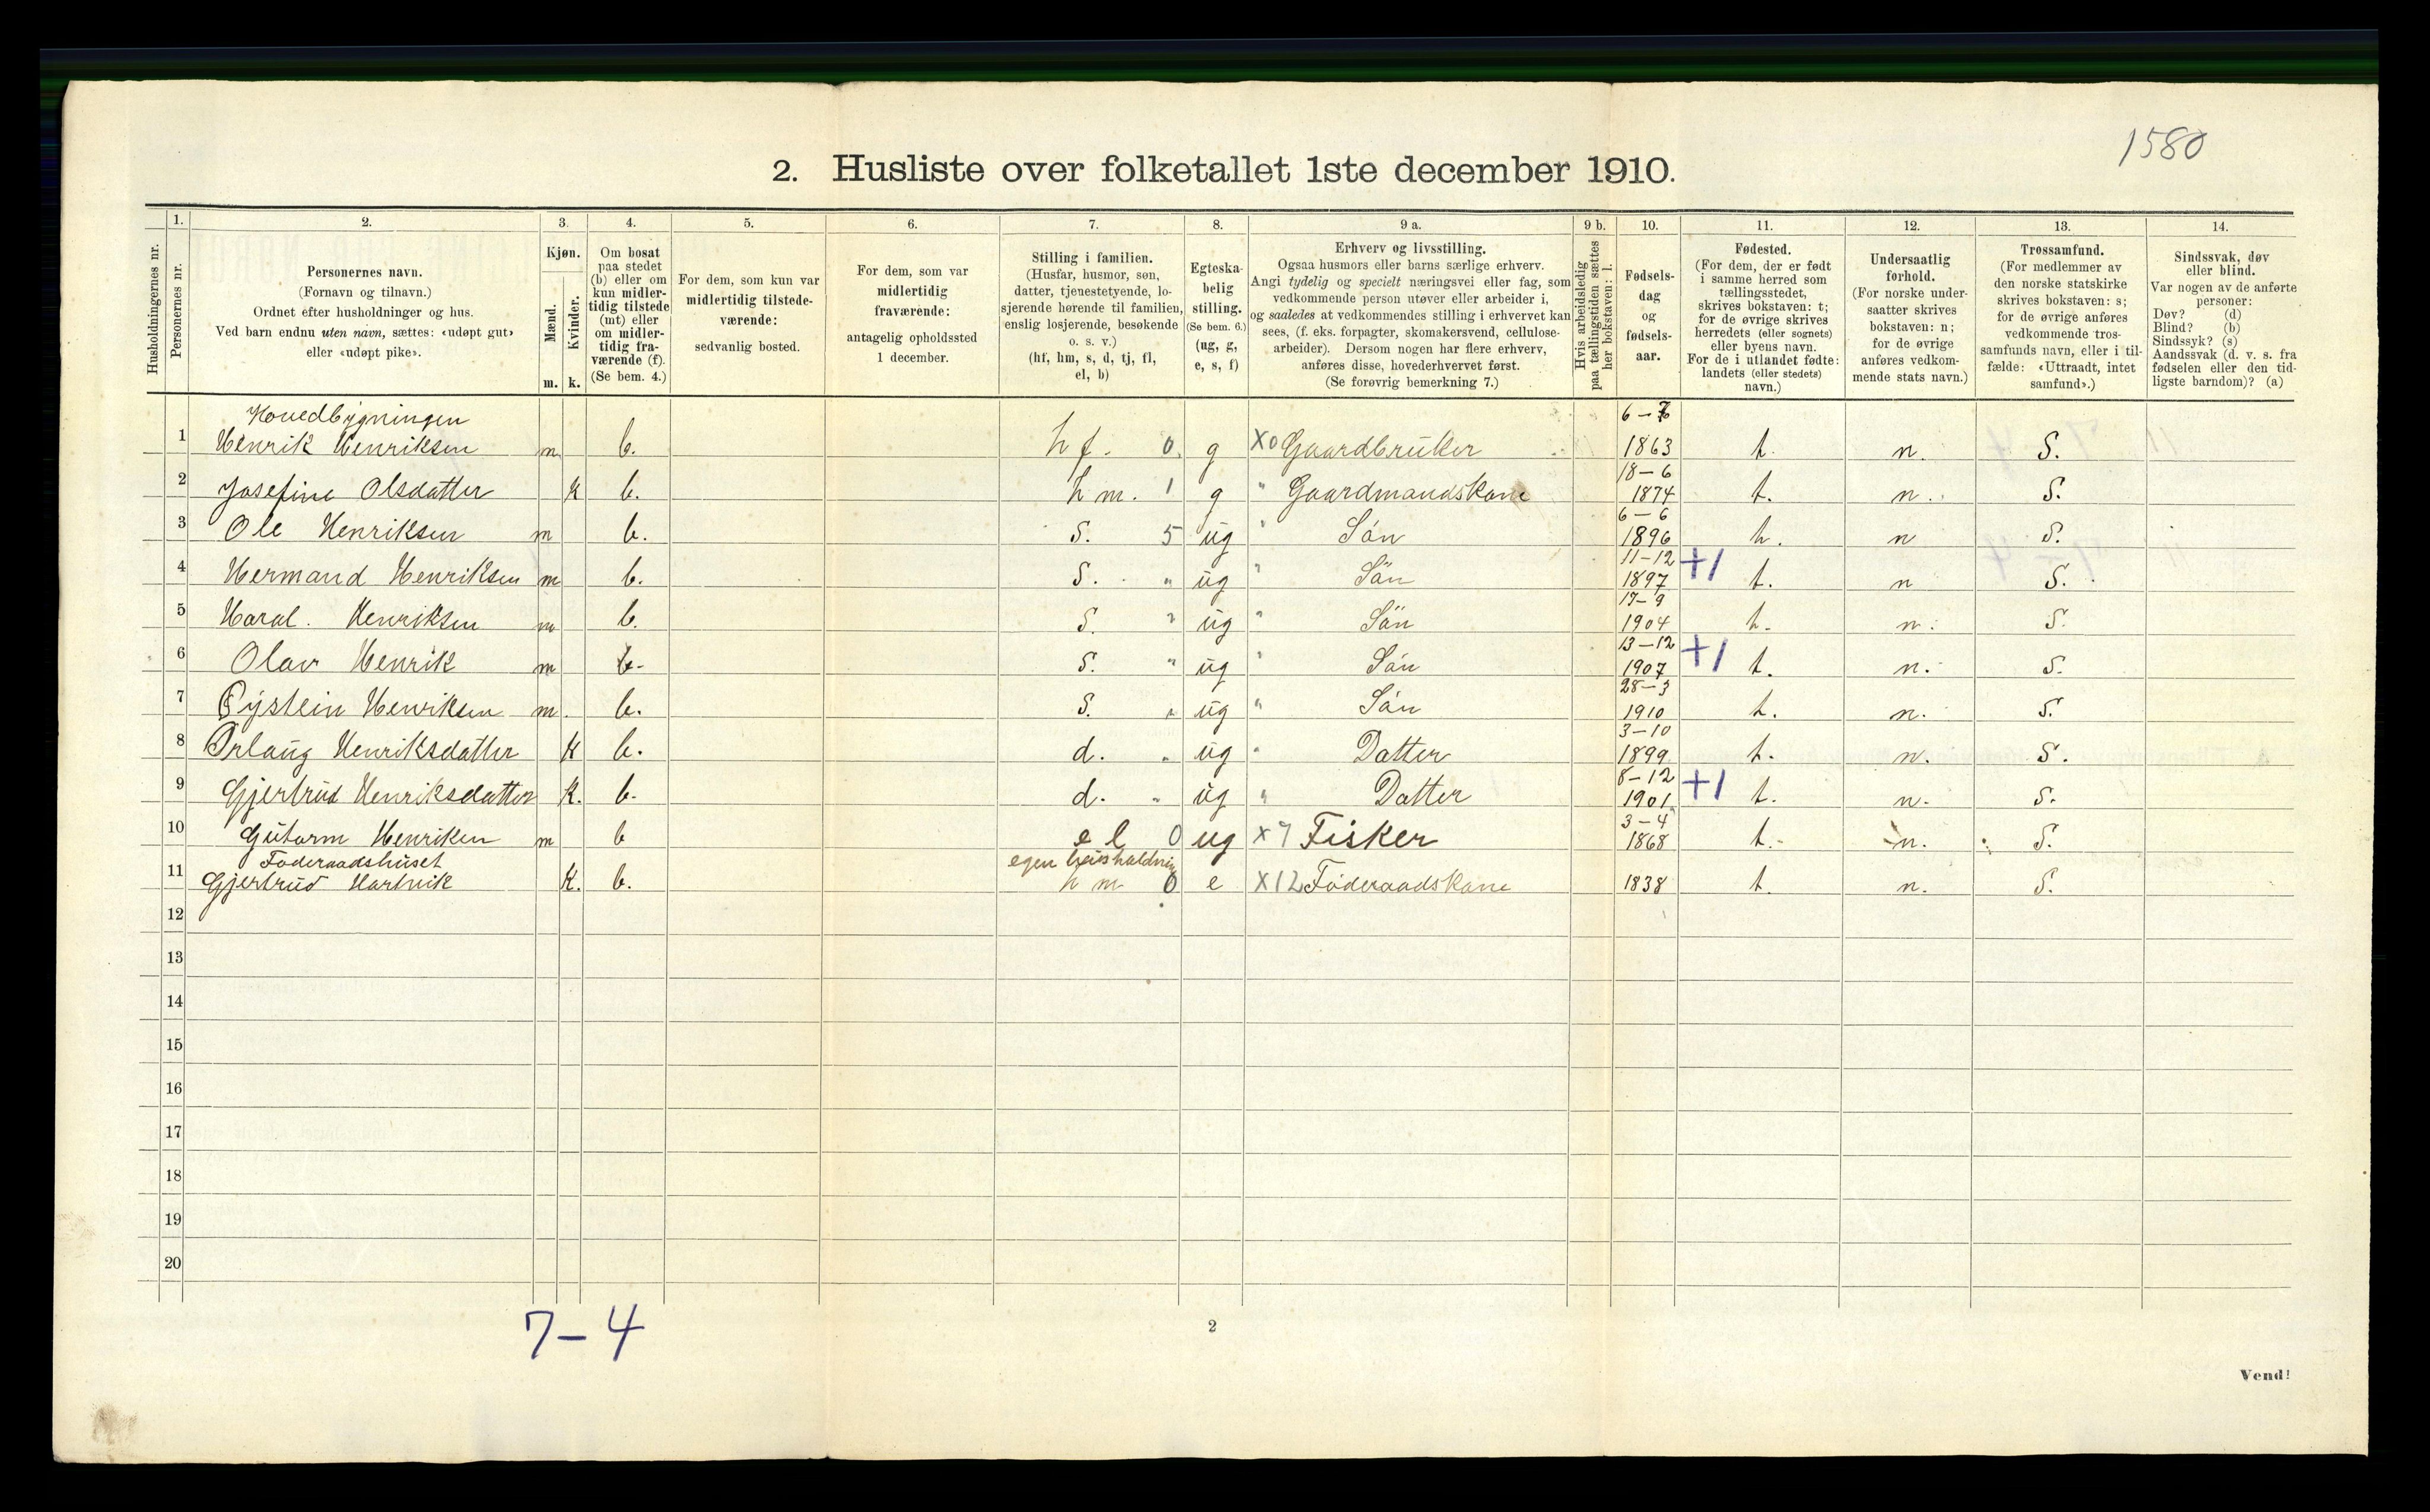 1580
2. Husliste over folketallet 1ste december 1910.
Husholdningernes nr.
1.
Personernes nr.
2.
Personernes navn.
(Fornavn og tilnavn.)
Ordnet efter husholdninger og hus.
Ved barn endnu uten navn, sættes: «udøpt gut»
eller «udøpt pike».
3.
Kjøn.
Mænd.
Kvinder.
m. k.
4.
Om bosat
paa stedet
(b) eller om
kun midler-
tidig tilstede
(mt) eller
om midler-
tidig fra-
værende (f).
(Se bem. 4.)
5.
For dem, som kun var
midlertidig tilstede-
værende:
sedvanlig bosted.
6.
For dem, som var
midlertidig
fraværende:
antagelig opholdssted
1 december.
7.
Stilling i familien.
(Husfar, husmor, søn,
datter, tjenestetyende, lo-
sjerende hørende til familien,
enslig losjerende, besøkende
o. s. v.)
(hf, hm, s, d, tj, fl,
el, b)
8.
Egteska-
belig
stilling.
(Se bem. 6.)
(ug, g,
e, s, f)
9 a.
Erhverv og livsstilling.
Ogsaa husmors eller barns særlige erhverv.
Angi tydelig og specielt næringsvei eller fag, som
vedkommende person utøver eller arbeider i,
og saaledes at vedkommendes stilling i erhvervet kan
sees, (f. eks. forpagter, skomakersvend, cellulose-
arbeider). Dersom nogen har flere erhverv,
anføres disse, hovederhvervet først.
(Se forøvrig bemerkning 7.)
9 b.
Hvis arbeidsledig
paa tællingstiden sættes
her bokstaven: l.
10.
Fødsels-
dag
og
fødsels-
aar.
11.
Fødested.
(For dem, der er født
i samme herred som
tællingsstedet,
skrives bokstaven: t;
for de øvrige skrives
herredets (eller sognets)
eller byens navn.
For de i utlandet fødte:
landets (eller stedets)
navn.)
12.
Undersaatlig
forhold.
(For norske under-
saatter skrives
bokstaven: n;
for de øvrige
anføres vedkom-
mende stats navn.)
13.
Trossamfund.
(For medlemmer av
den norske statskirke
skrives bokstaven: s;
for de øvrige anføres
vedkommende tros-
samfunds navn, eller i til-
fælde: «Uttraadt, intet
samfund».)
14.
Sindssvak, døv
eller blind.
Var nogen av de anførte
personer:
Døv? (d)
Blind? (b)
Sindssyk? (s)
Aandssvak (d. v. s. fra
fødselen eller den tid-
ligste barndom)? (a)
Hovedbygningen
1 Henrik Henriksen m b. hf. 0 g X0 Gaardbruker 6-7 1863 t. n. S.
2 Josefine Olsdatter k b. hm. 1 g " Gaardmandskone 18-6 1874 t. n. S.
3 Ole Henriksen m b. S. 5 ug " Sön 6-6 1896 t. n S.
4 Hermand Henriksen m b. S. " ug " Sön 11-12 1897 +1 t. n S.
5 Haral. Henriksen m b. S. " ug " Sön 17-9 1904 t. n. S.
6 Olav Henrik m b- S. " ug " Sön 13-12 1907 +1 t. n. S.
7 Eystein Henriksen m. b. S. " ug " Sön 28-3 1910 t. n. S.
8 Orlaug Henriksdatter k b. d. " ug " Datter 3-10 1899 t. n. S.
9 Gjertrud Henriksdatter k. b. d. " ug " Datter 8-12 1901 +1 t. n. S.
10 Gutorm Henriken m b e l 0 ug X7 Fisker 3-4 1868 t. n. S.
Föderaadshuset egen husholdning
11 Gjertrud Hartvik k. b. hm 0 e X12 Föderaadskone 1838 t. n. S.
12
13
14
15
16
17
18
19
20
7-4
2
Vend!